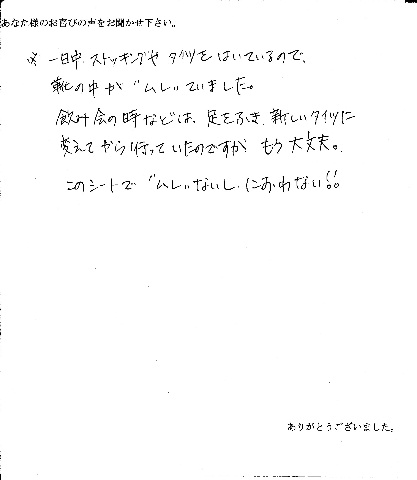 あなた様のお喜びの声をお聞かせ下さい。
※ 一日中、ストッキングや タイツを はいているので、
靴の中が "ムレ"ていました。
飲み会の時などは、足をふき、新しいタイツに
変えてから行っていたのですが もう 大丈夫。
このシートで "ムレ"ないし、におわない!!
ありがとうございました。